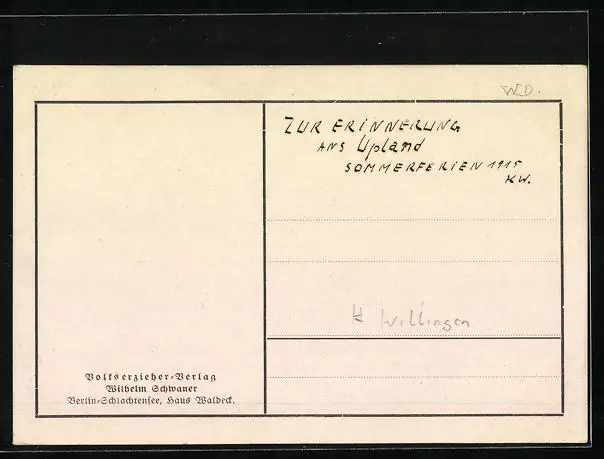 WD.
ZUR ERINNERUNG
ANS Upland
SOMMERFERIEN 1915
KW.
H Willingen
Volkserzieher-Verlag
Wilhelm Schwaner
Berlin-Schlachtensee, Haus Waldeck.